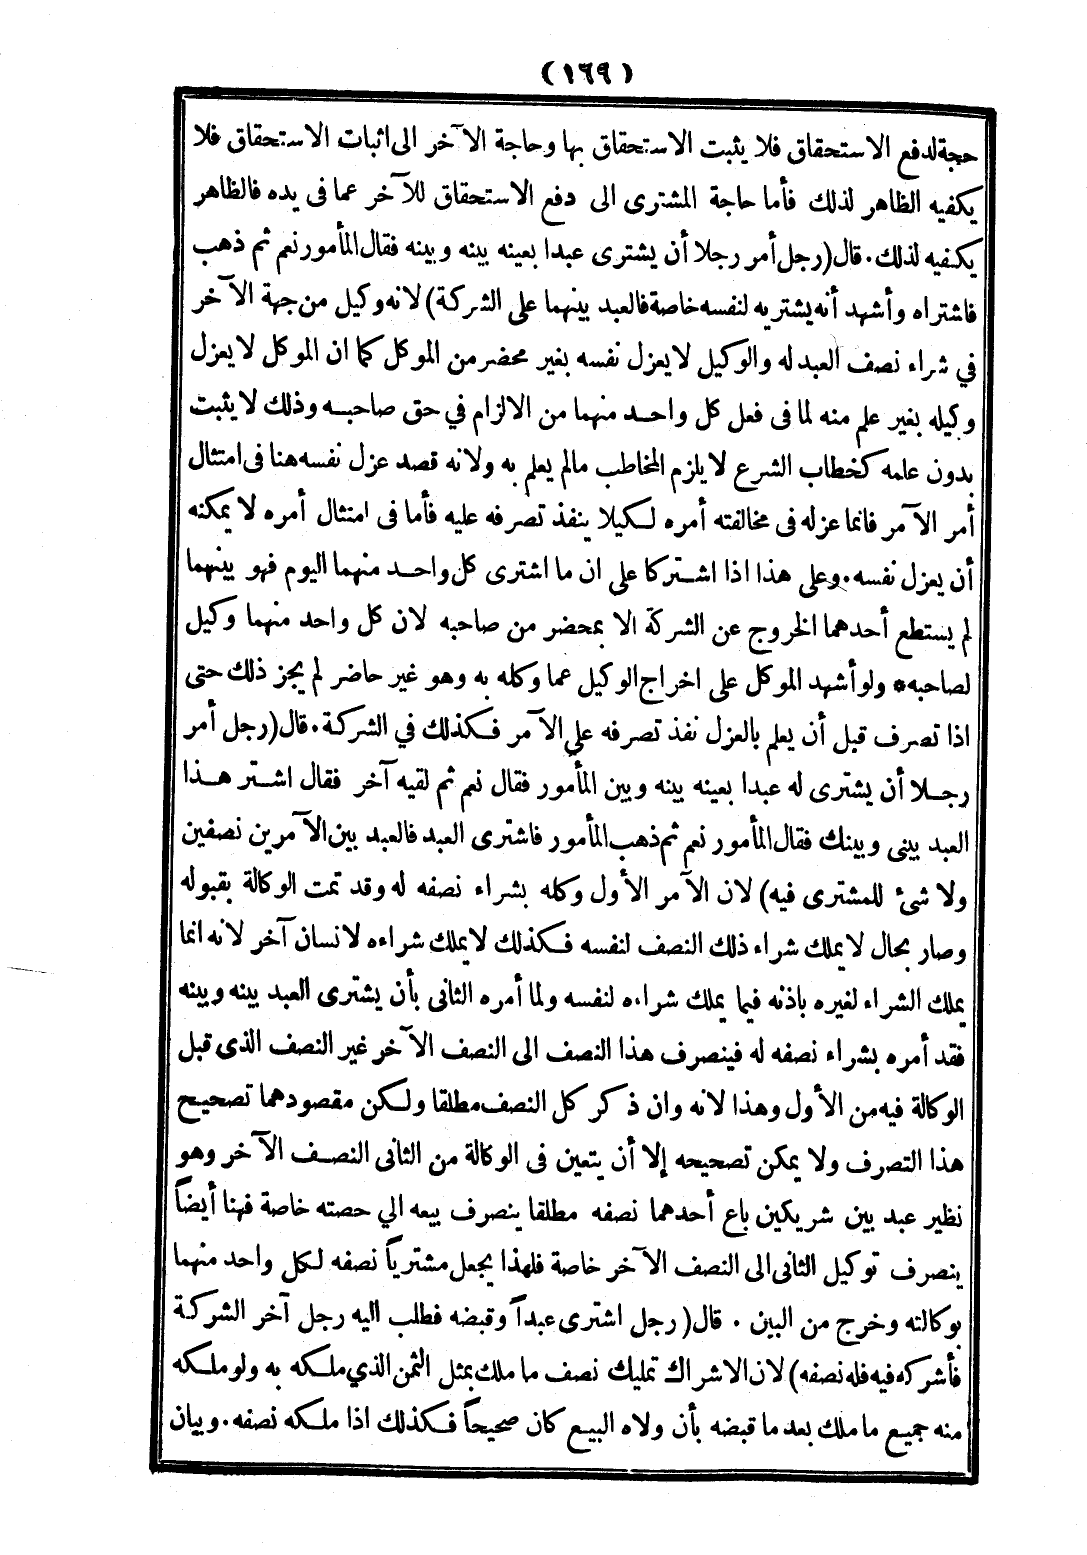 (١٦٩)
حجة لدفع الاستحقاق فلا يثبت الاستحقاق بها وحاجة الآخر الى اثبات الاستحقاق فلا
يكفيه الظاهر لذلك فأما حاجة المشترى الى دفع الاستحقاق للآخر عما فى يده فالظاهر
يكفيه لذلك. قال (رجل أمر رجلا أن يشترى عبدا بعينه بينه وبينه فقال المأمور نعم ثم ذهب
فاشتراه وأشهد أنه يشتريه لنفسه خاصة فالعبد بينهما على الشركة) لانه وكيل من جهة الآخر
في شراء نصف العبد له والوكيل لا يعزل نفسه بغير محضر من الموكل كما ان الموكل لا يعزل
وكيله بغير علم منه لما فى فعل كل واحد منهما من الالزام في حق صاحبه وذلك لا يثبت
بدون علمه كخطاب الشرع لا يلزم المخاطب مالم يعلم به ولانه قصد عزل نفسه هنا فى امتثال
أمر الآمر فانما عزله فى مخالفته أمره لكيلا ينفذ تصرفه عليه فأما فى امتثال أمره لا يمكنه
أن يعزل نفسه. وعلى هذا اذا اشتركا على ان ما اشترى كل واحد منهما اليوم فهو بينهما
لم يستطع أحدهما الخروج عن الشركة الا بمحضر من صاحبه لان كل واحد منهما وكيل
لصاحبه* ولو أشهد الموكل على اخراج الوكيل عما وكله به وهو غير حاضر لم يجز ذلك حتى
اذا تصرف قبل أن يعلم بالعزل نفذ تصرفه على الآمر فكذلك في الشركة. قال (رجل أمر
رجلا أن يشترى له عبدا بعينه بينه وبين المأمور فقال نعم ثم لقيه آخر فقال اشتر هذا
العبد بينى وبينك فقال المأمور نعم ثم ذهب المأمور فاشترى العبد فالعبد بين الآمرين نصفين
ولا شئ للمشترى فيه) لان الآمر الأول وكله بشراء نصفه له وقد تمت الوكالة بقبوله
وصار بحال لا يملك شراء ذلك النصف لنفسه فكذلك لا يملك شراءه لانسان آخر لانه انما
يملك الشراء لغيره باذنه فيما يملك شراءه لنفسه ولما أمره الثانى بأن يشترى العبد بينه وبينه
فقد أمره بشراء نصفه له فينصرف هذا النصف الى النصف الآخر غير النصف الذى قبل
الوكالة فيه من الأول وهذا لانه وان ذكر كل النصف مطلقا ولكن مقصودهما تصحيح
هذا التصرف ولا يمكن تصحيحه إلا أن يتعين فى الوكالة من الثانى النصف الآخر وهو
نظير عبد بين شريكين باع أحدهما نصفه مطلقا ينصرف بيعه الي حصته خاصة فهنا أيضاً
ينصرف توكيل الثانى الى النصف الآخر خاصة فلهذا يجعل مشترياً نصفه لكل واحد منهما
بوكالته وخرج من البين. قال (رجل اشترى عبداً وقبضه فطلب اليه رجل آخر الشركة
فأشركه فيه فله نصفه) لان الاشراك تمليك نصف ما ملك بمثل الثمن الذي ملكه به ولو ملكه
منه جميع ما ملك بعد ما قبضه بأن ولاه البيع كان صحيحاً فكذلك اذا ملكه نصفه. وبيان